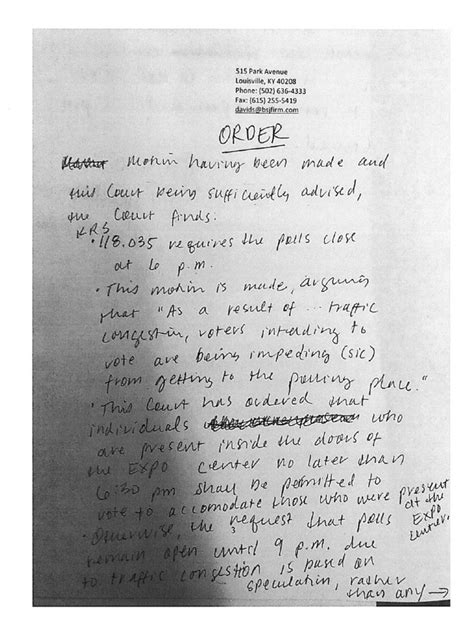 515 Park Avenue
Louisville, KY 40208
Phone: (502) 636-4333
Fax: (615) 255-5419
davids@bsjfirm.com
ORDER
Motion having been made and
this Court being sufficiently advised,
the Court finds:
KRS
• 118.035 requires the polls close
at 6 p.m.
• This motion is made, arguing
that "As a result of ... traffic
congestion, voters intending to
vote are being impeding (sic)
from getting to the polling place."
• This Court has ordered that
individuals who
are present inside the doors of
the EXPO center no later than
6:30 pm shall be permitted to
vote to accomodate those who were present
at the
EXPO
center.
• Otherwise, the request that polls
remain open until 9 p.m. due
to traffic congestion is based on
speculation, rather
than any →